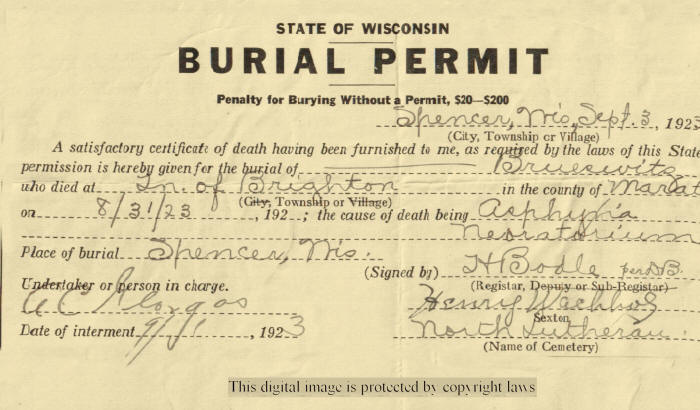 STATE OF WISCONSIN
BURIAL PERMIT
Penalty for Burying Without a Permit, $20—$200
Spencer, Wis, Sept. 3, 1923
(City, Township or Village)
A satisfactory certificate of death having been furnished to me, as required by the laws of this State
permission is hereby given for the burial of Bruesewitz
who died at Tn. of Brighton in the county of Marat
(City, Township or Village)
on 8/31/23, 192 ; the cause of death being Asphyxia
Neonatorium
Place of burial Spencer, Wis.
(Signed by) H Bodle per
(Registrar, Deputy or Sub-Registrar)
Undertaker or person in charge.
Henry
Sexton
Date of interment 9/1, 1923
North Lutheran.
(Name of Cemetery)
This digital image is protected by copyright laws